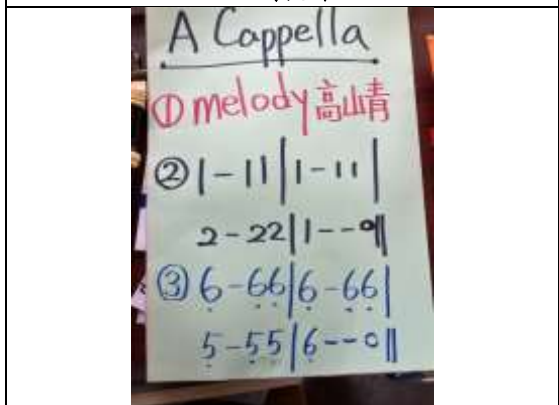 A Cappella
① melody 高山青
② 1 - 1 1 | 1 - 1 1 |
2 - 2 2 | 1 - - 0 ‖
③ 6̣ - 6̣ 6̣ | 6̣ - 6̣ 6̣ |
5̣ - 5̣ 5̣ | 6̣ - - 0 ‖